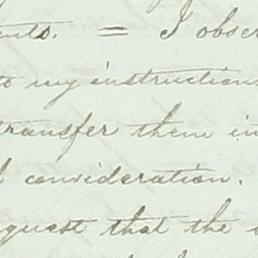 = I obser
to my instructions
transfer them in
consideration.
quest that the